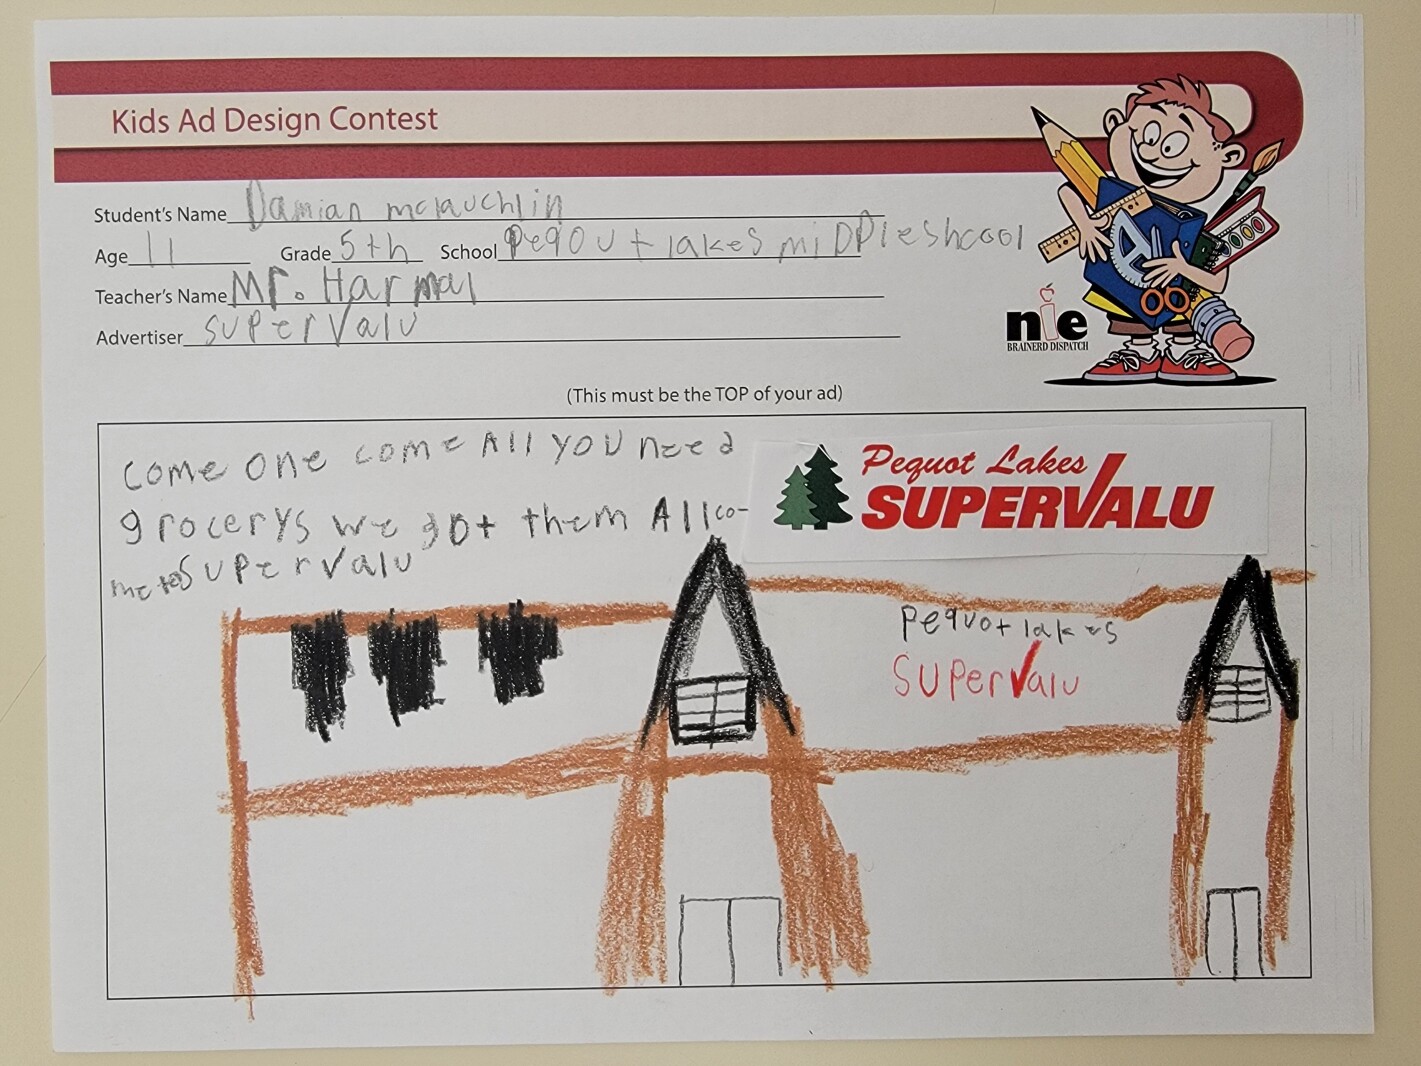 Kids Ad Design Contest
Student's Name Damian mclauchlin
Age 11 Grade 5th School Pequot lakes miDDleshcool
Teacher's Name Mr. Harmal
Advertiser Supervalu
nie
BRAINERD DISPATCH
(This must be the TOP of your ad)
come one come All you need
grocerys we got them All co-
me to Supervalu
Pequot Lakes
SUPERVALU
Pequot lakes
Supervalu